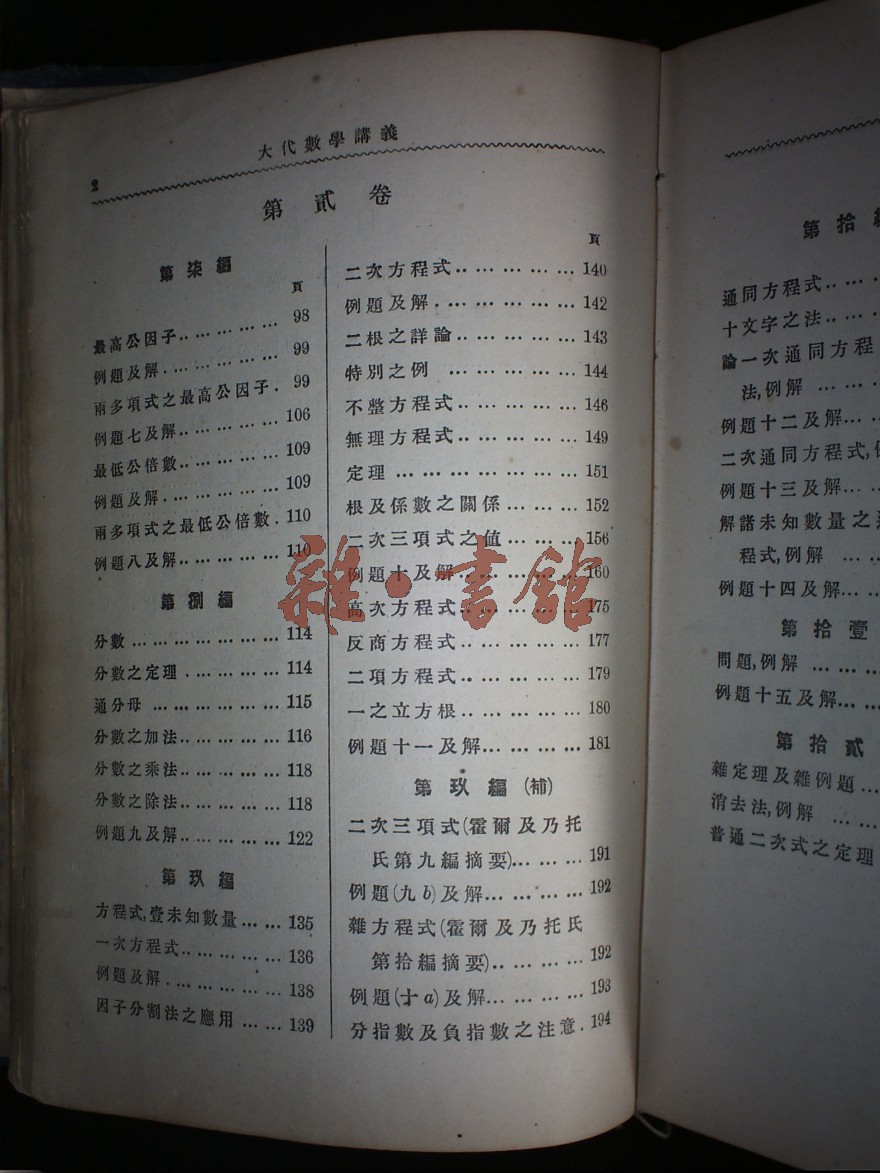 2
大代數學講義
第貳卷
第柒編
頁
最高公因子……………… 98
例題及解……………… 99
兩多項式之最高公因子. 99
例題七及解……………106
最低公倍數……………109
例題及解………………109
兩多項式之最低公倍數.110
例題八及解……………110
第捌編
分數……………………114
分數之定理……………114
通分母…………………115
分數之加法……………116
分數之乘法……………118
分數之除法……………118
例題九及解……………122
第玖編
方程式,壹未知數量……135
一次方程式……………136
例題及解………………138
因子分割法之應用……139
頁
二次方程式……………140
例題及解………………142
二根之詳論……………143
特別之例………………144
不整方程式……………146
無理方程式……………149
定理……………………151
根及係數之關係………152
二次三項式之值………156
例題十及解……………160
高次方程式……………175
反商方程式……………177
二項方程式……………179
一之立方根……………180
例題十一及解…………181
第玖編(補)
二次三項式(霍爾及乃托
氏第九編摘要)…………191
例題(九b)及解…………192
雜方程式(霍爾及乃托氏
第拾編摘要)……………192
例題(十a)及解…………193
分指數及負指數之注意.194
雜·書館
第拾編
通同方程式……
十文字之法……
論一次通同方程
法,例解……
例題十二及解……
二次通同方程式,
例題十三及解……
解諸未知數量之
程式,例解……
例題十四及解……
第拾壹
問題,例解……
例題十五及解……
第拾貳
雜定理及雜例題…
消去法,例解……
普通二次式之定理